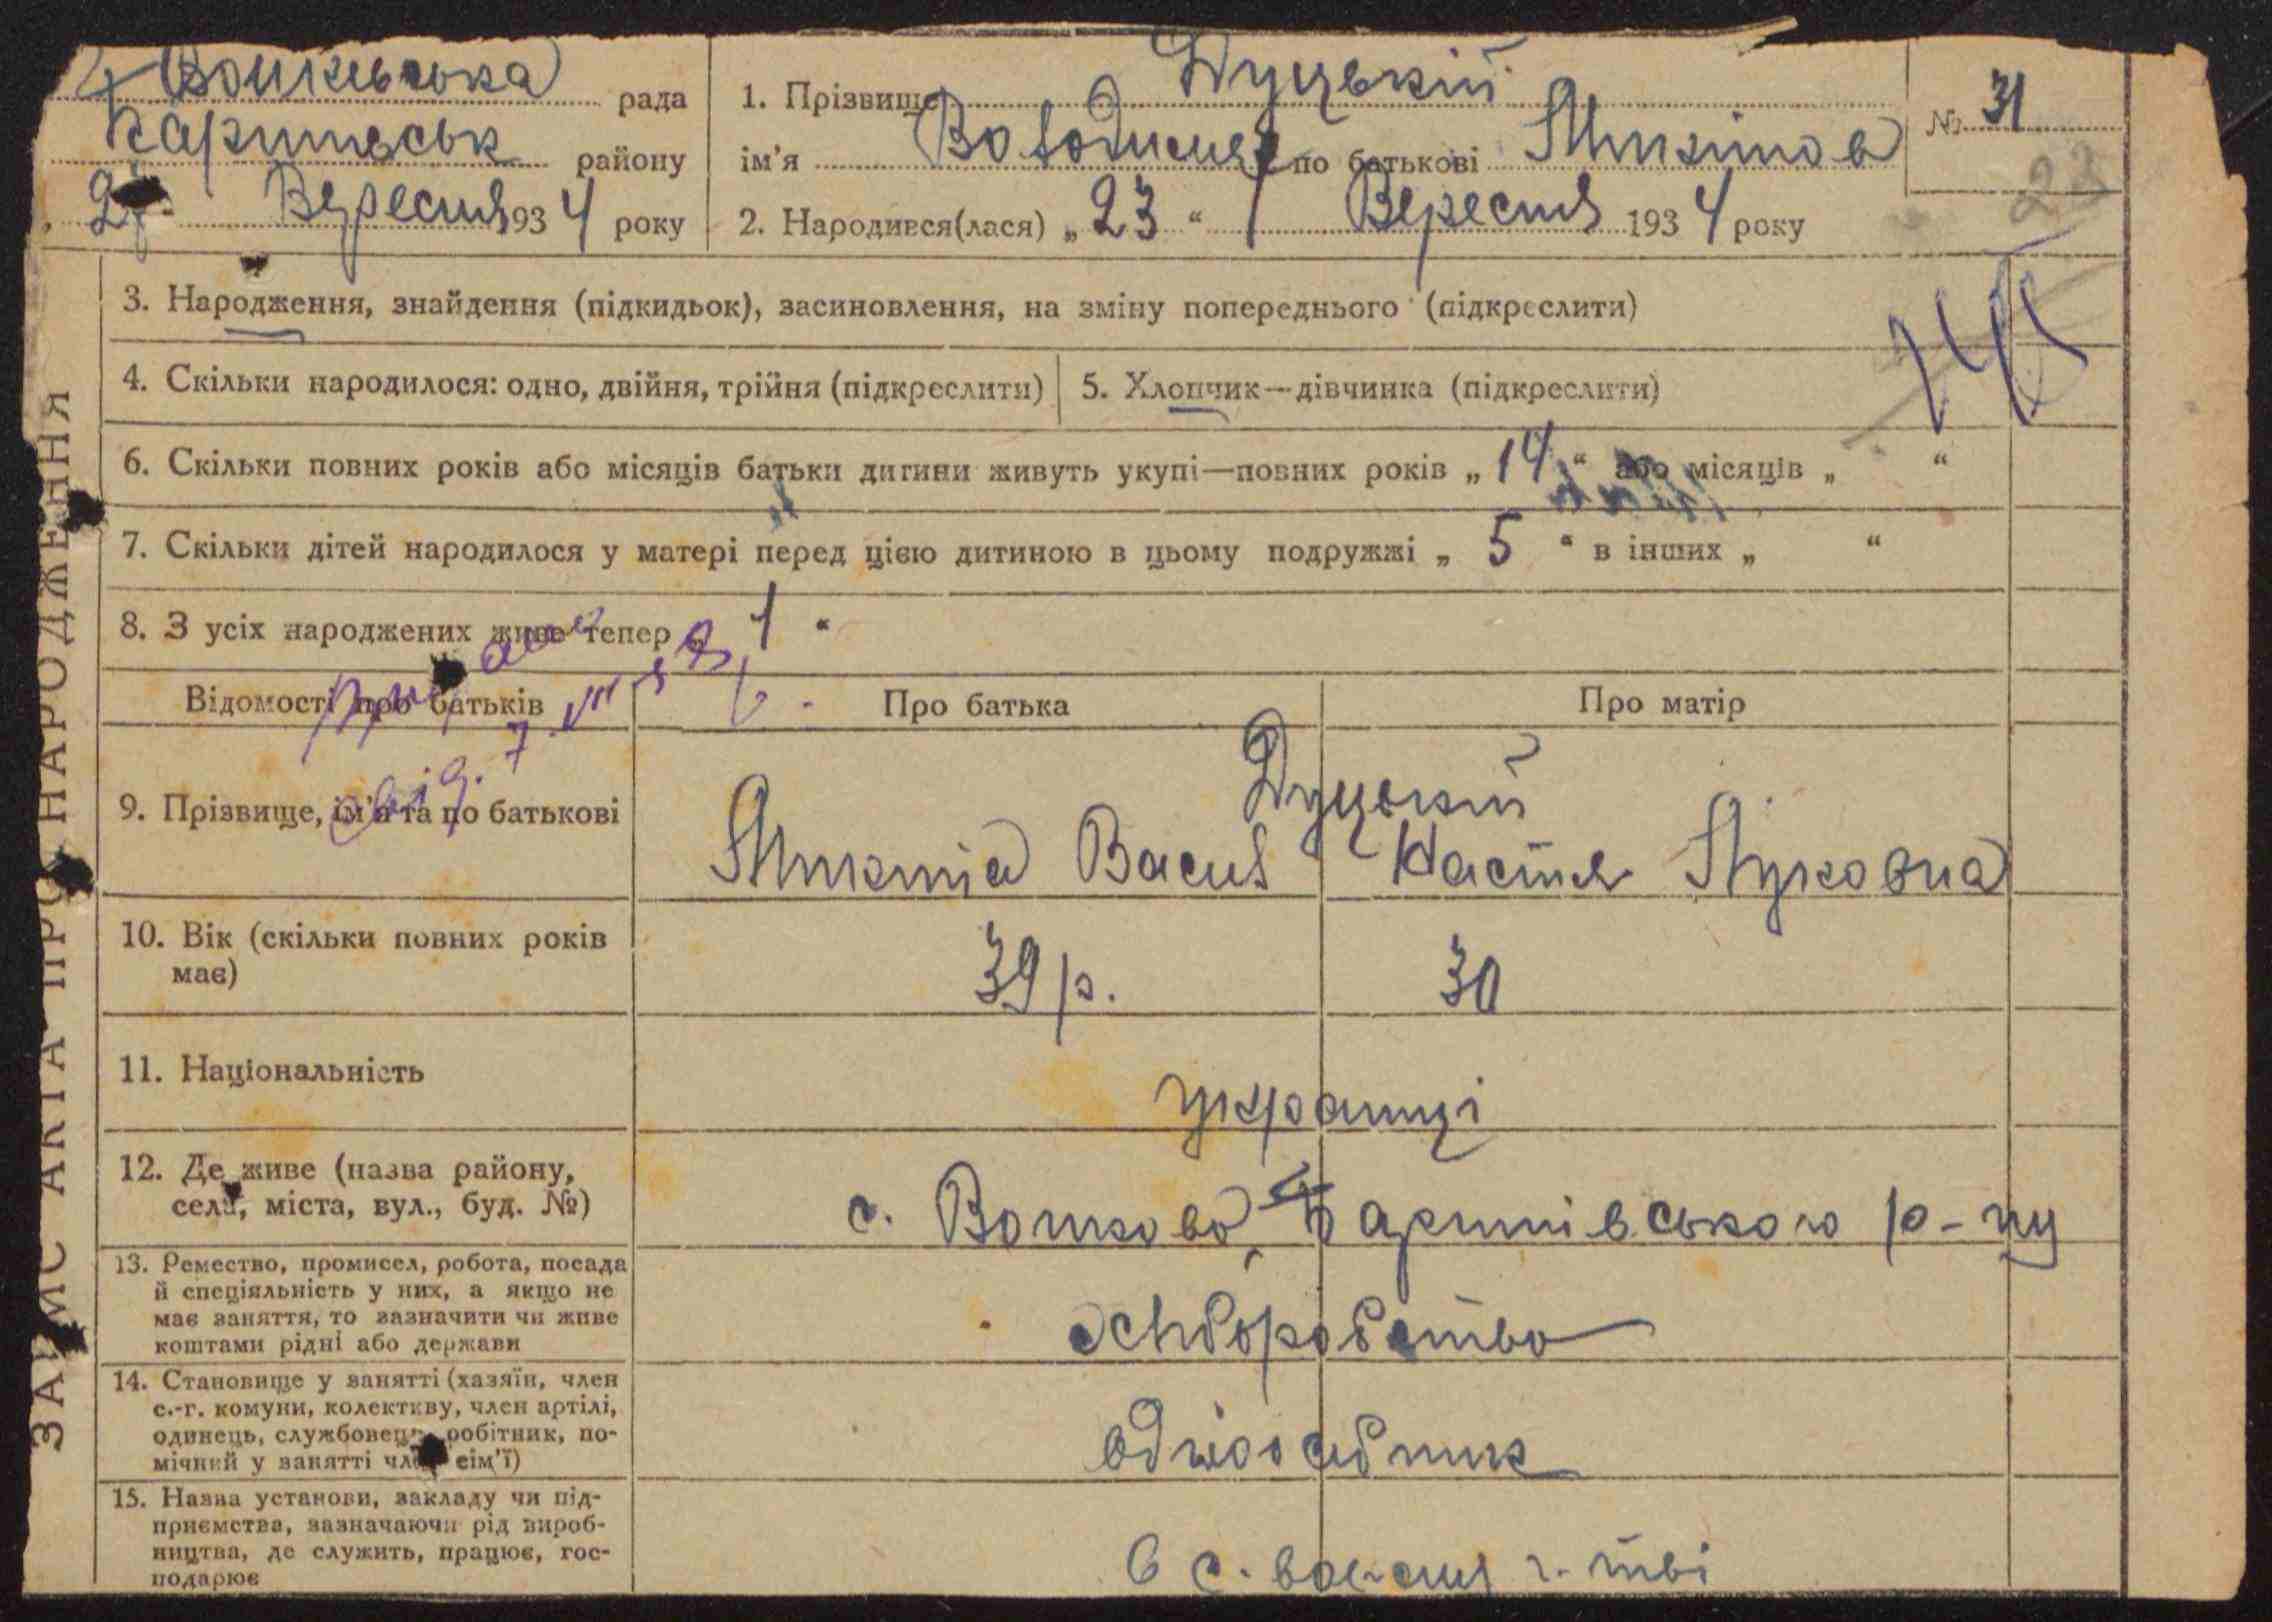 Войкевська рада
району
27 Вересня 1934 року
1. Прізвище Дуцький
ім'я Володимир по батькові Микитов
№ 31
23
2. Народився(лася) „ 23 “ Вересня 1934 року
3. Народження, знайдення (підкидьок), засиновлення, на зміну попереднього (підкреслити)
4. Скільки народилося: одно, двійня, трійня (підкреслити)
5. Хлопчик—дівчинка (підкреслити)
6. Скільки повних років або місяців батьки дитини живуть укупі—повних років „ 14 “ або місяців „ “
7. Скільки дітей народилося у матері перед цією дитиною в цьому подружжі „ 5 “ в інших „ “
8. З усіх народжених живе тепер „ 1 “
Відомості про батьків
Про батька
Про матір
9. Прізвище, ім'я та по батькові
Дуцький
Микита Васил
Настя Луковна
10. Вік (скільки повних років має)
39 р.
30
11. Національність
українці
12. Де живе (назва району, села, міста, вул., буд. №)
с. Войково р-ну
13. Ремество, промисел, робота, посада
й спеціяльність у них, а якщо не
має заняття, то зазначити чи живе
коштами рідні або держави
хліборобство
14. Становище у занятті (хазяїн, член
с.-г. комуни, колективу, член артілі,
одинець, службовець, робітник, по-
мічний у занятті член сім'ї)
одноосібник
15. Назва установи, закладу чи під-
приємства, зазначаючи рід вироб-
ництва, де служить, працює, гос-
подарює
в с.
ЗАПИС АКТА ПРО НАРОДЖЕННЯ